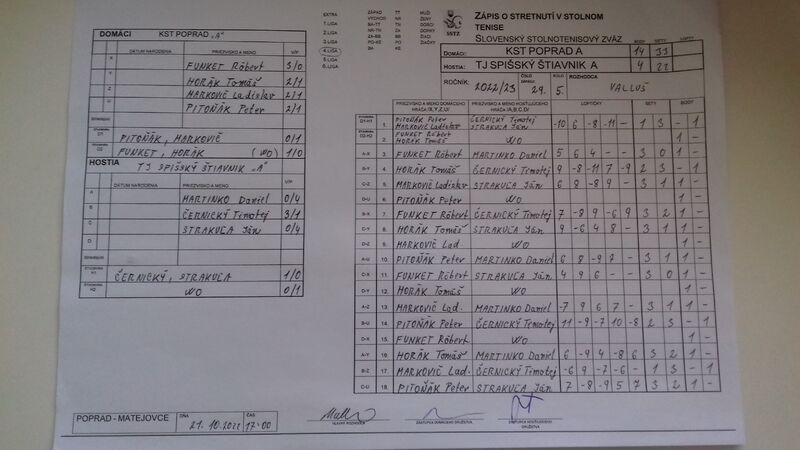 DOMÁCI KST POPRAD „A"
DÁTUM NARODENIA PRIEZVISKO A MENO V/P
X FUNKET Róbert 3/0
Y HORÁK Tomáš 2/1
Z MARKOVIČ Ladislav 2/1
U PITOŇÁK Peter 2/1
D1 PITOŇÁK, MARKOVIČ 0/1
D2 FUNKET, HORÁK (WO) 1/0
HOSTIA TJ SPIŠSKÝ ŠTIAVNIK „A"
DÁTUM NARODENIA PRIEZVISKO A MENO V/P
A MARTINKO Daniel 0/4
B ČERNICKÝ Timotej 3/1
C STRAKUĽA Ján 0/4
D
H1 ČERNICKÝ, STRAKUĽA 1/0
H2 WO 0/1
POPRAD - MATEJOVCE DŇA 21. 10. 2022 ČAS 17:00
EXTRA
1. LIGA
2. LIGA
3. LIGA
4. LIGA
5. LIGA
6. LIGA
ZÁPAD TT MUŽI
VÝCHOD NR ŽENY
BA-TT TN DORCI
NR-TN ZA DORKY
ZA-BB BB ŽIACI
PO-KE PO ŽIAČKY
BA KE
SSTZ
ZÁPIS O STRETNUTÍ V STOLNOM
TENISE
SLOVENSKÝ STOLNOTENISOVÝ ZVÄZ
BODY SETY LOPTY
DOMÁCI: KST POPRAD A 14 33
HOSTIA: TJ SPIŠSKÝ ŠTIAVNIK A 4 22
ROČNÍK: 2022/23 ČÍSLO 29. 5. ROZHODCA VALLUŠ
PRIEZVISKO A MENO DOMÁCEHO HRÁČA /X,Y,Z,U/ PRIEZVISKO A MENO HOSŤUJÚCEHO HRÁČA /A,B,C,D/ LOPTIČKY SETY BODY
D1-H1 1. PITOŇÁK Peter MARKOVIČ Ladislav ČERNICKÝ Timotej STRAKUĽA Ján -10 6 -8 -11 - 1 3 - 1
D2-H2 2. FUNKET Róbert HORÁK Tomáš WO 1 -
A-X 3. FUNKET Róbert MARTINKO Daniel 5 6 4 - - 3 0 1 -
B-Y 4. HORÁK Tomáš ČERNICKÝ Timotej 9 -8 -11 7 -9 2 3 - 1
C-Z 5. MARKOVIČ Ladislav STRAKUĽA Ján 6 8 -8 9 - 3 1 1 -
D-U 6. PITOŇÁK Peter WO 1 -
B-X 7. FUNKET Róbert ČERNICKÝ Timotej 7 -8 9 -6 9 3 2 1 -
C-Y 8. HORÁK Tomáš STRAKUĽA Ján 9 -6 4 8 - 3 1 1 -
D-Z 9. MARKOVIČ Lad. WO 1 -
A-U 10. PITOŇÁK Peter MARTINKO Daniel 6 8 -9 7 - 3 1 1 -
C-X 11. FUNKET Róbert STRAKUĽA Ján 4 9 6 - - 3 0 1 -
D-Y 12. HORÁK Tomáš WO 1 -
A-Z 13. MARKOVIČ Lad. MARTINKO Daniel -7 9 6 7 - 3 1 1 -
B-U 14. PITOŇÁK Peter ČERNICKÝ Timotej 11 -9 -7 10 -8 2 3 - 1
D-X 15. FUNKET Róbert WO 1 -
A-Y 16. HORÁK Tomáš MARTINKO Daniel 6 -9 4 -8 6 3 2 1 -
B-Z 17. MARKOVIČ Lad. ČERNICKÝ Timotej -6 9 -7 -6 - 1 3 - 1
C-U 18. PITOŇÁK Peter STRAKUĽA Ján 7 -8 -9 5 7 3 2 1 -
HLAVNÝ ROZHODCA ZÁSTUPCA DOMÁCEHO DRUŽSTVA ZÁSTUPCA HOSŤUJÚCEHO DRUŽSTVA